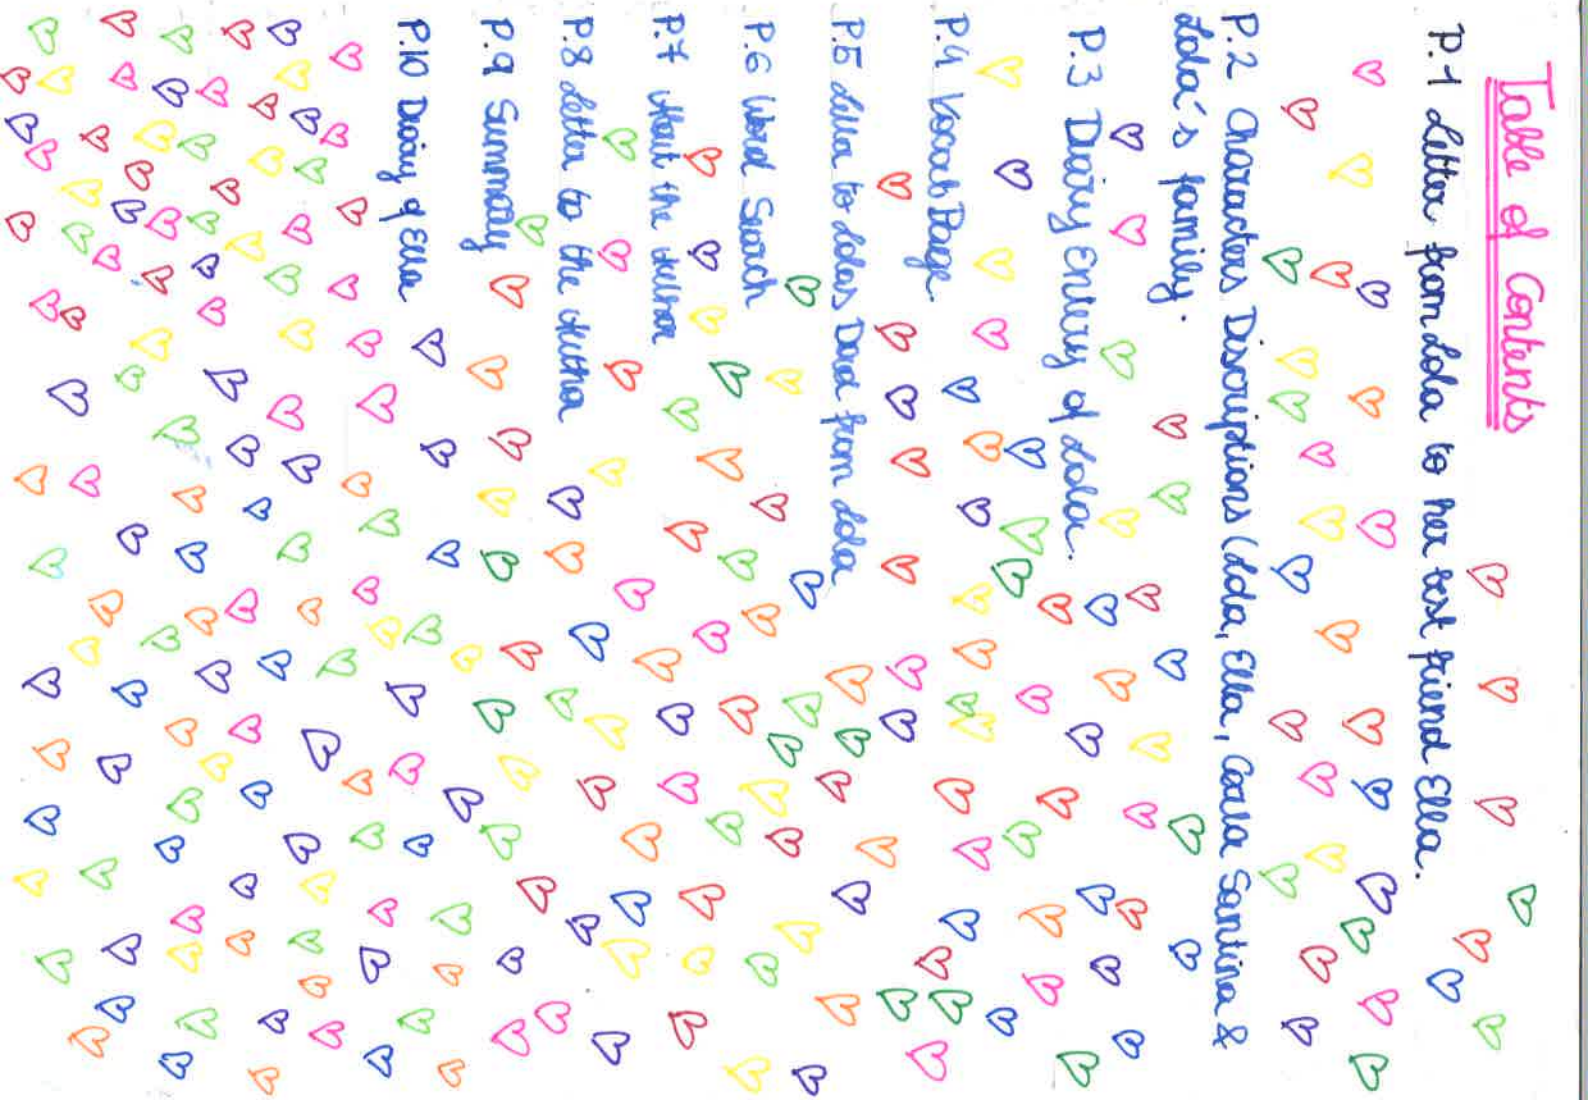 Table of Contents
P.1 Letter from Lola to her best friend Ella.
P.2 Characters Discriptions (Lola, Ella, Carla Santina &
Lola's family.
P.3 Dairy Entery of Lola.
P.4 Vocab Page.
P.5 Letter to Lolas Dad from Lola
P.6 Word Search
P.7 About the Author
P.8 Letter to the Author
P.9 Summary
P.10 Dairy of Ella